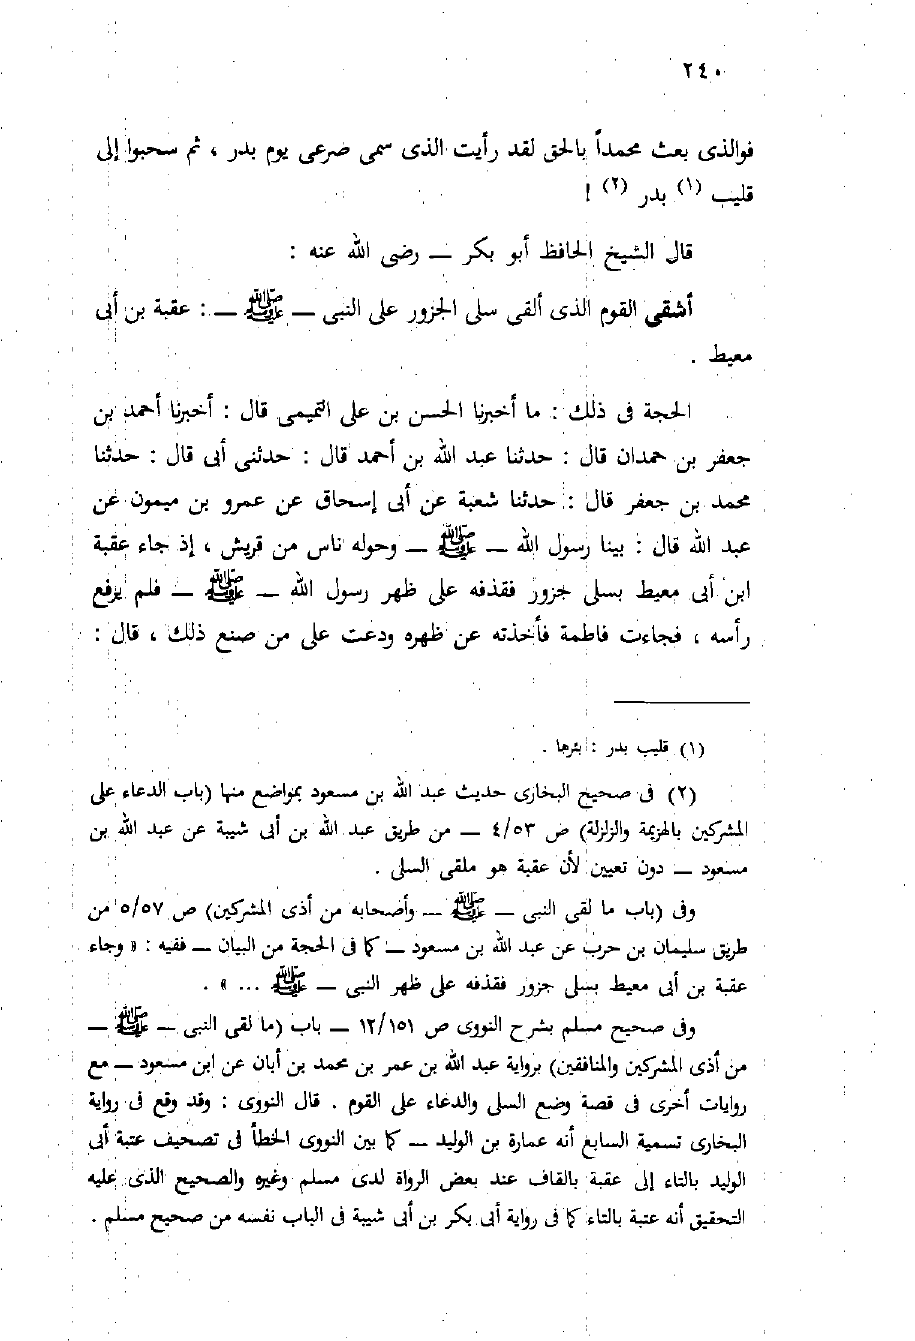 ٢٤٠
فوالذى بعث محمداً بالحق لقد رأيت الذى سمى صرعى يوم بدر ، ثم سحبوا إلى
قليب (١) بدر (٢) !
قال الشيخ الحافظ أبو بكر ــ رضى الله عنه :
أشقى القوم الذى ألقى سلى الجزور على النبى ــ ﷺ ــ : عقبة بن أبى
معيط .
الحجة فى ذلك : ما أخبرنا الحسن بن على التميمى قال : أخبرنا أحمد بن
جعفر بن حمدان قال : حدثنا عبد الله بن أحمد قال : حدثنى أبى قال : حدثنا
محمد بن جعفر قال : حدثنا شعبة عن أبى إسحاق عن عمرو بن ميمون عن
عبد الله قال : بينا رسول الله ــ ﷺ ــ وحوله ناس من قريش ، إذ جاء عقبة
ابن أبى معيط بسلى جزور فقذفه على ظهر رسول الله ــ ﷺ ــ فلم يرفع
رأسه ، فجاءت فاطمة فأخذته عن ظهره ودعت على من صنع ذلك ، قال :
(١) قليب بدر : بئرها .
(٢) فى صحيح البخارى حديث عبد الله بن مسعود بمواضع منها (باب الدعاء على
المشركين بالهزيمة والزلزلة) ص ٤/٥٣ ــ من طريق عبد الله بن أبى شيبة عن عبد الله بن
مسعود ــ دون تعيين لأن عقبة هو ملقى السلى .
وفى (باب ما لقى النبى ــ ﷺ ــ وأصحابه من أذى المشركين) ص ٥/٥٧ من
طريق سليمان بن حرب عن عبد الله بن مسعود ــ كما فى الحجة من البيان ــ ففيه : « وجاء
عقبة بن أبى معيط بسلى جزور فقذفه على ظهر النبى ــ ﷺ ... » .
وفى صحيح مسلم بشرح النووى ص ١٢/١٥١ ــ باب (ما لقى النبى ــ ﷺ ــ
من أذى المشركين والمنافقين) برواية عبد الله بن عمر بن محمد بن أبان عن ابن مسعود ــ مع
روايات أخرى فى قصة وضع السلى والدعاء على القوم . قال النووى : وقد وقع فى رواية
البخارى تسمية السابع أنه عمارة بن الوليد ــ كما بين النووى الخطأ فى تصحيف عتبة أبى
الوليد بالتاء إلى عقبة بالقاف عند بعض الرواة لدى مسلم وغيره والصحيح الذى عليه
التحقيق أنه عتبة بالتاء كما فى رواية أبى بكر بن أبى شيبة فى الباب نفسه من صحيح مسلم .